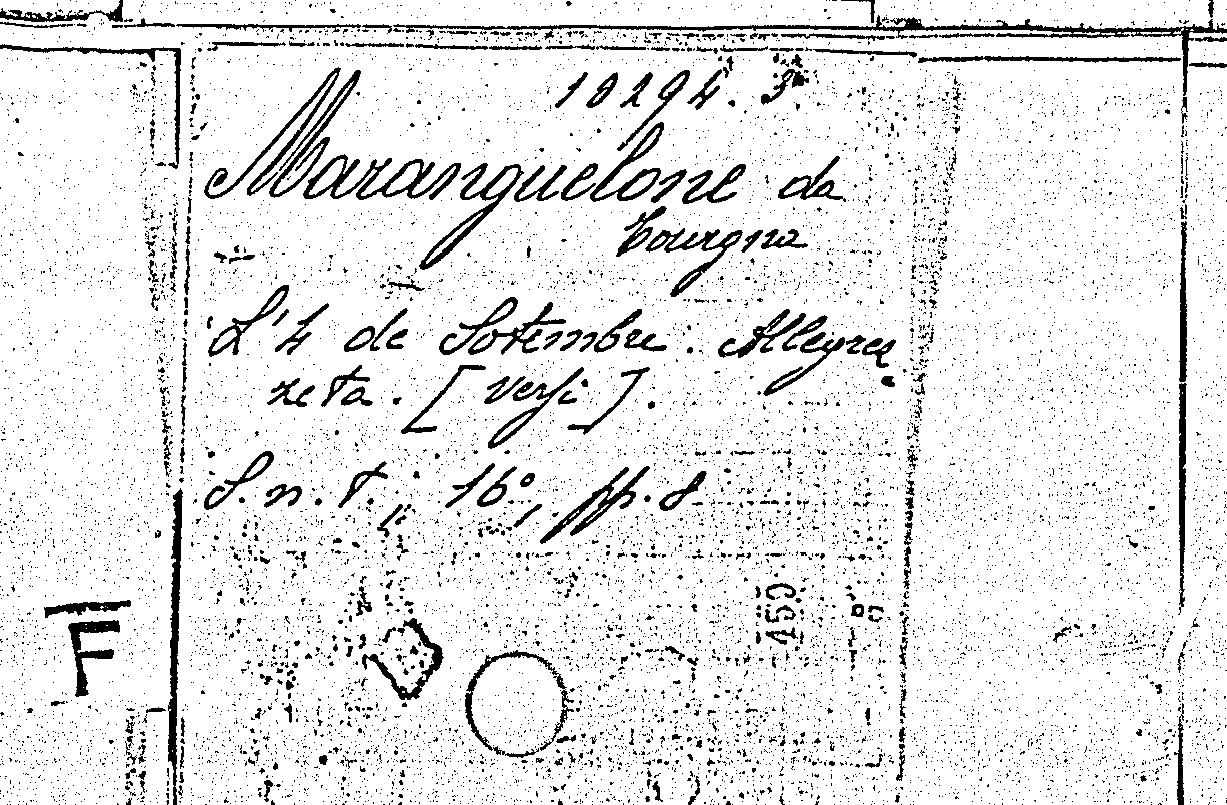 10294.3
Maranguelone da
Tourgna
L'4 de Sotembre. Allegrez
zeta. [Versi].
S. n. T.; 16°, pp. 8
450
F